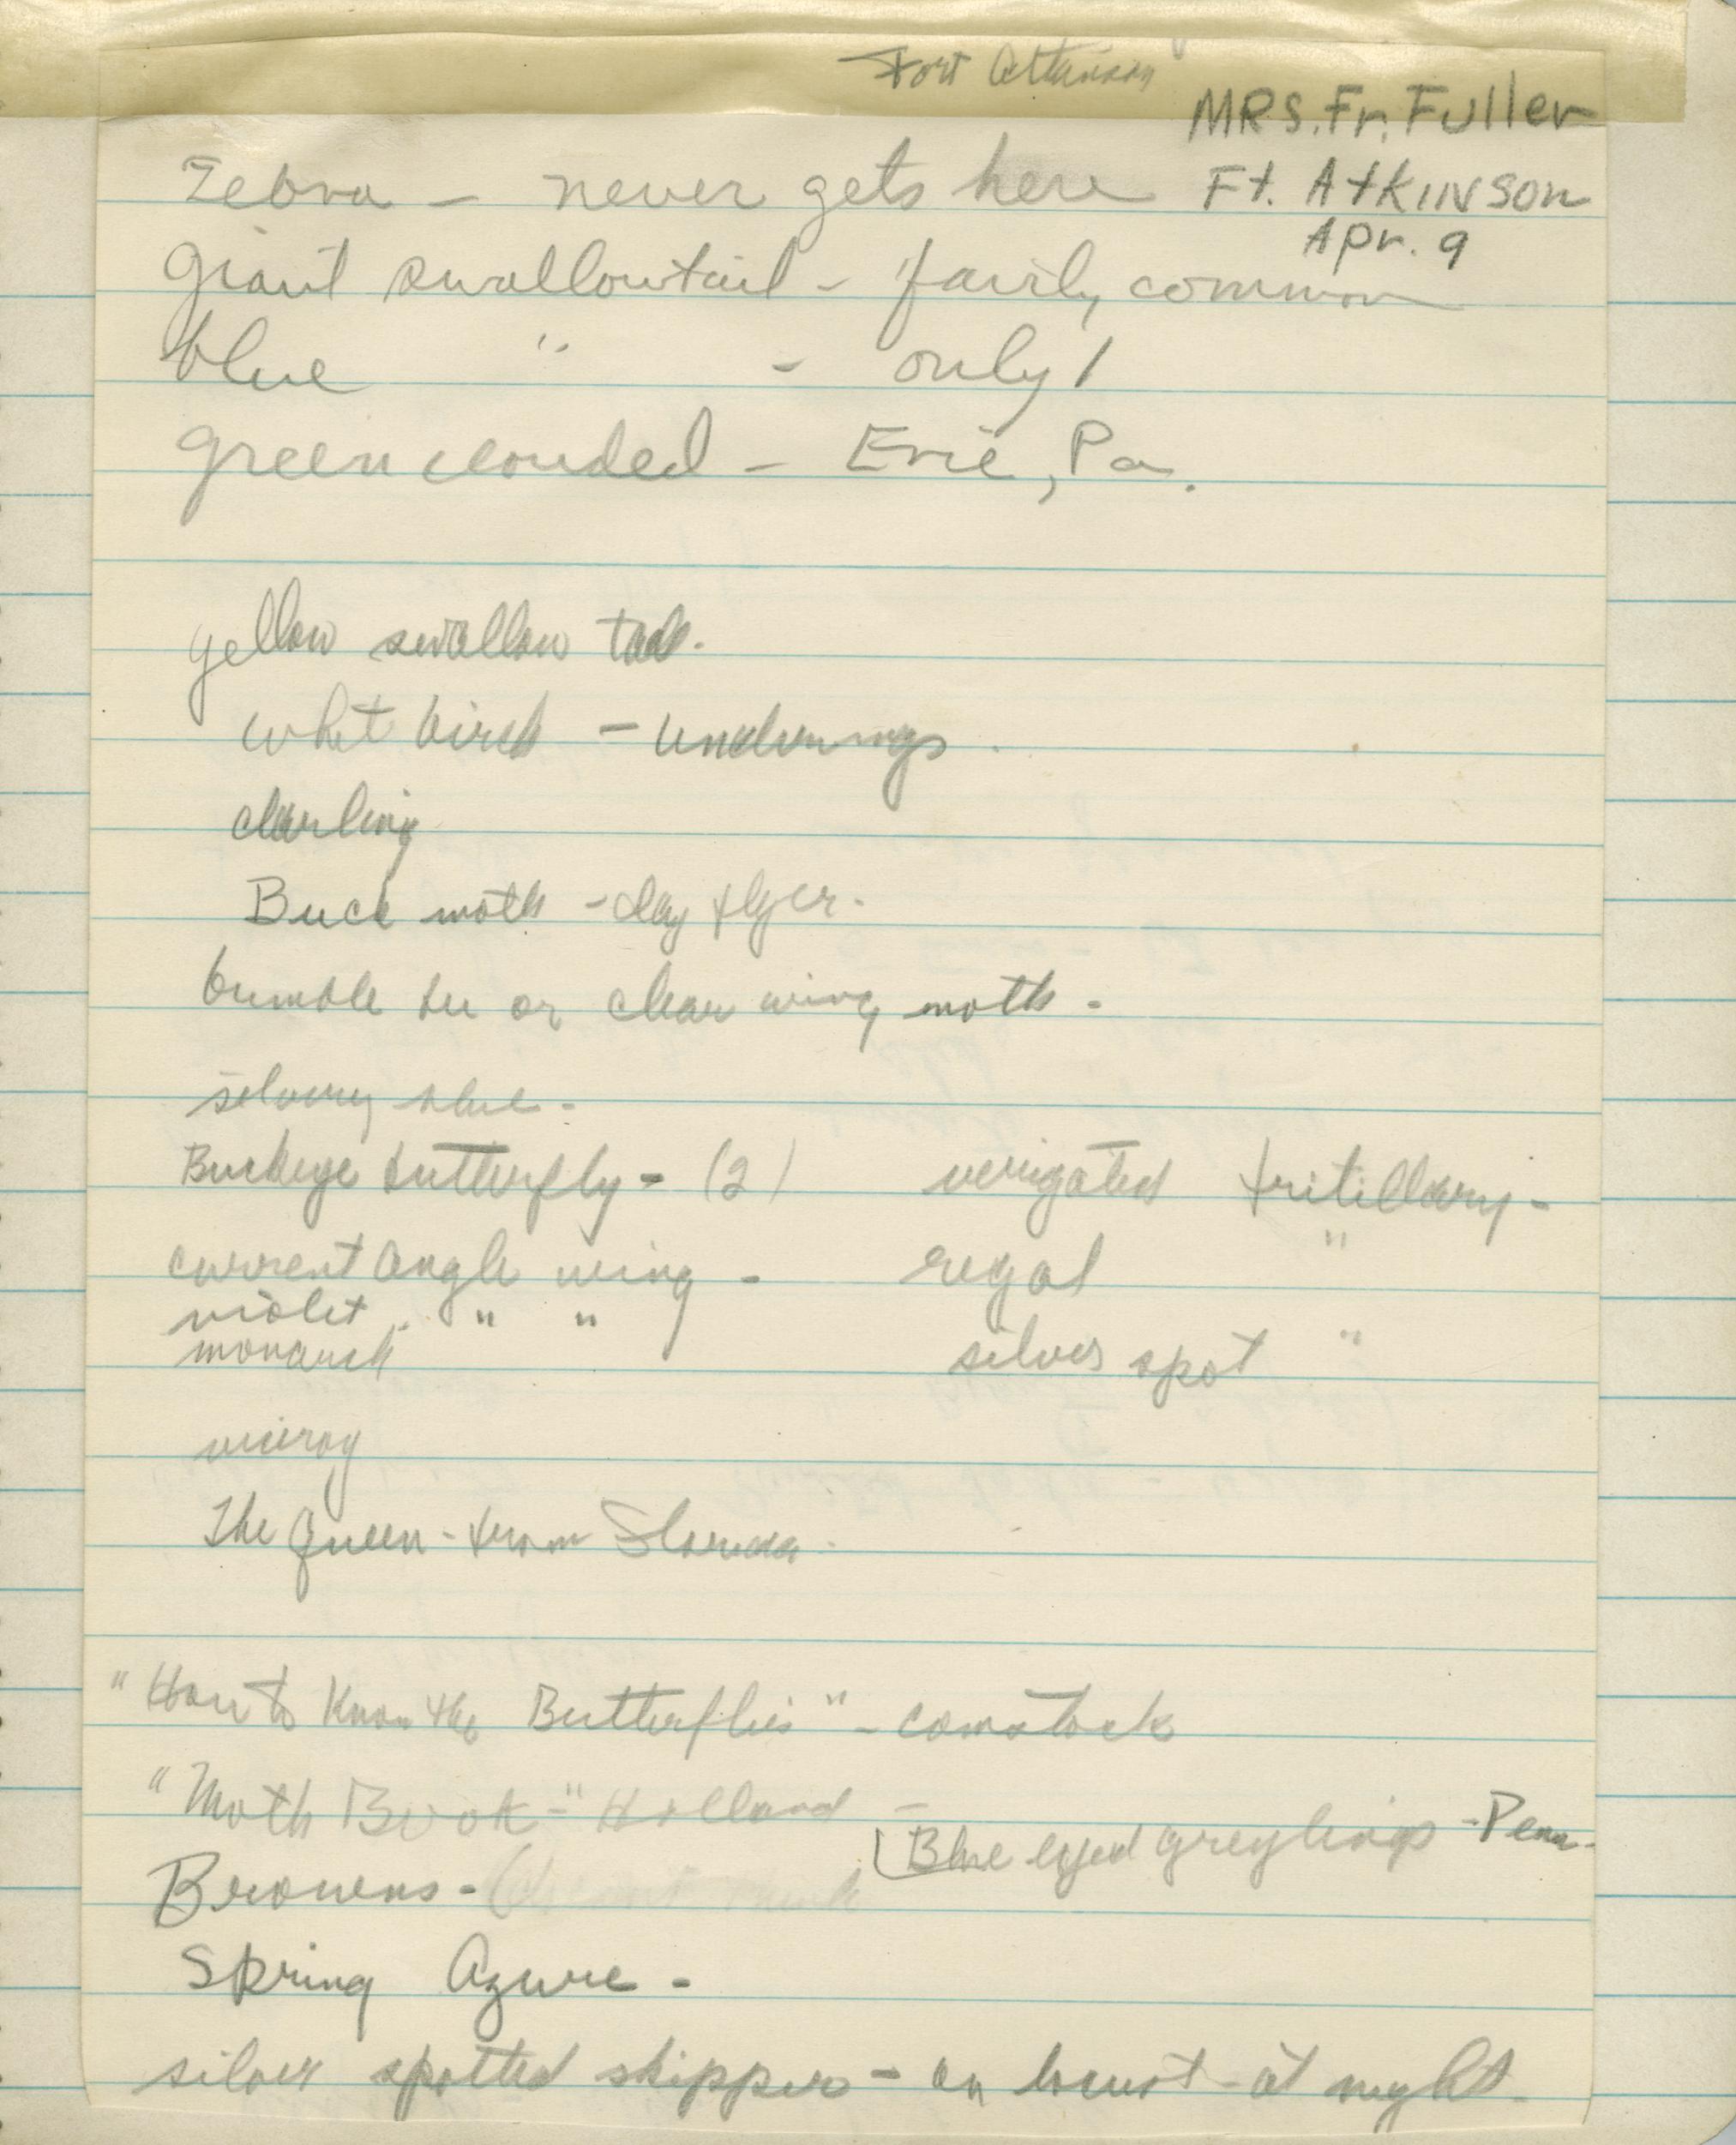 Fort Atkinson
MRS. Fr. Fuller
Ft. Atkinson
Apr. 9
Zebra - never gets here
Giant swallowtail - fairly common
blue " - only 1
green clouded - Erie, Pa.
yellow swallow tail.
whit birch - underwings.
darling
Buck moth - day flyer.
bumble bee or clear wing moth -
silvery blue -
Buckeye butterfly - (2)
verigated fritillary -
current angle wing -
regal "
violet " "
monarch
silver spot "
viceroy
The Queen - from Florida.
"How to Know the Butterflies" - comstock
"Moth Book" - Holland -
Blue eyed greylings - Penn.
Browns -
Spring Azure -
silver spotted skipper - on locust - at night.